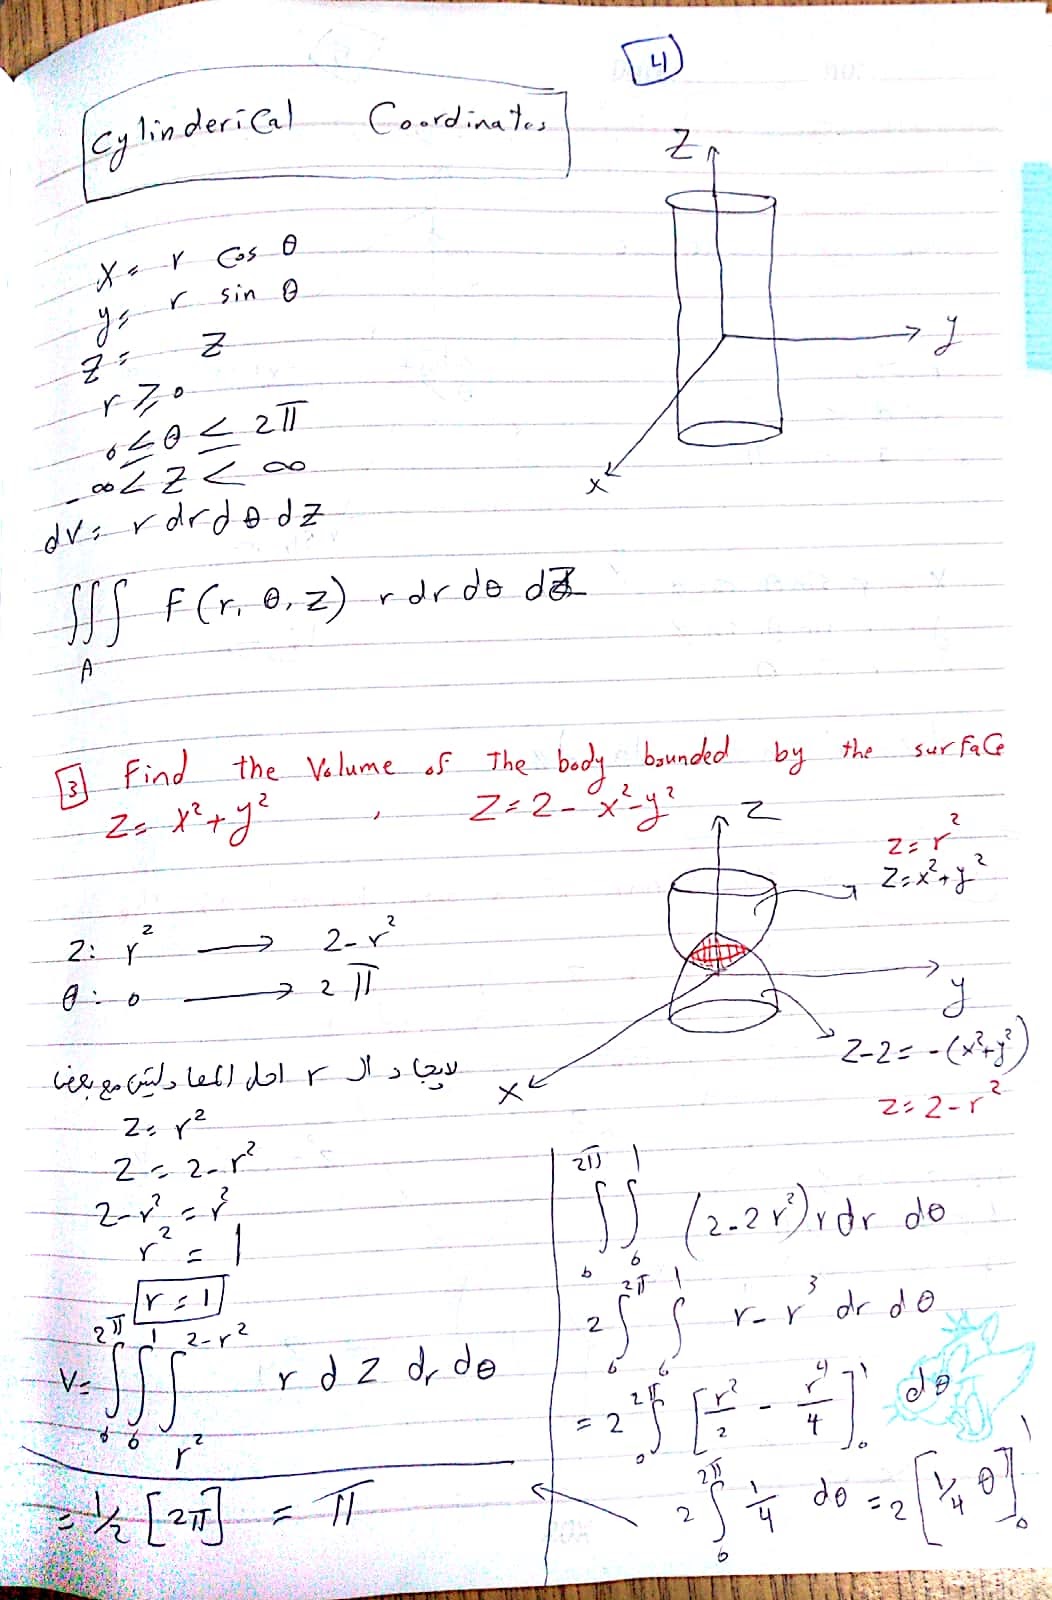 4
Cylinderical Coordinates
Z
x = r cos θ
y = r sin θ
z = z
r ≥ 0
0 ≤ θ ≤ 2π
-∞ < z < ∞
dV = r dr dθ dz
y
x
∫∫∫ F(r, θ, z) r dr dθ dz
A
3 Find the Volume of The body bounded by the surface
z = x² + y² , z = 2 - x² - y²
Z
z = r²
z = x² + y²
z: r² → 2 - r²
θ: 0 → 2π
y
z - 2 = -(x² + y²)
z = 2 - r²
x
لايجاد ال r احل المعادلتين مع بعض
z = r²
z = 2 - r²
2 - r² = r²
r² = 1
r = 1
V = ∫₀^2π ∫₀^1 ∫_r²^2-r² r dz dr dθ
∫₀^2π ∫₀^1 (2 - 2r²) r dr dθ
2 ∫₀^2π ∫₀^1 r - r³ dr dθ
= 2 ∫₀^2π [r²/2 - r⁴/4]₀^1 dθ
2 ∫₀^2π 1/4 dθ = 2 [1/4 θ]₀^1
= 1/2 [2π] = π